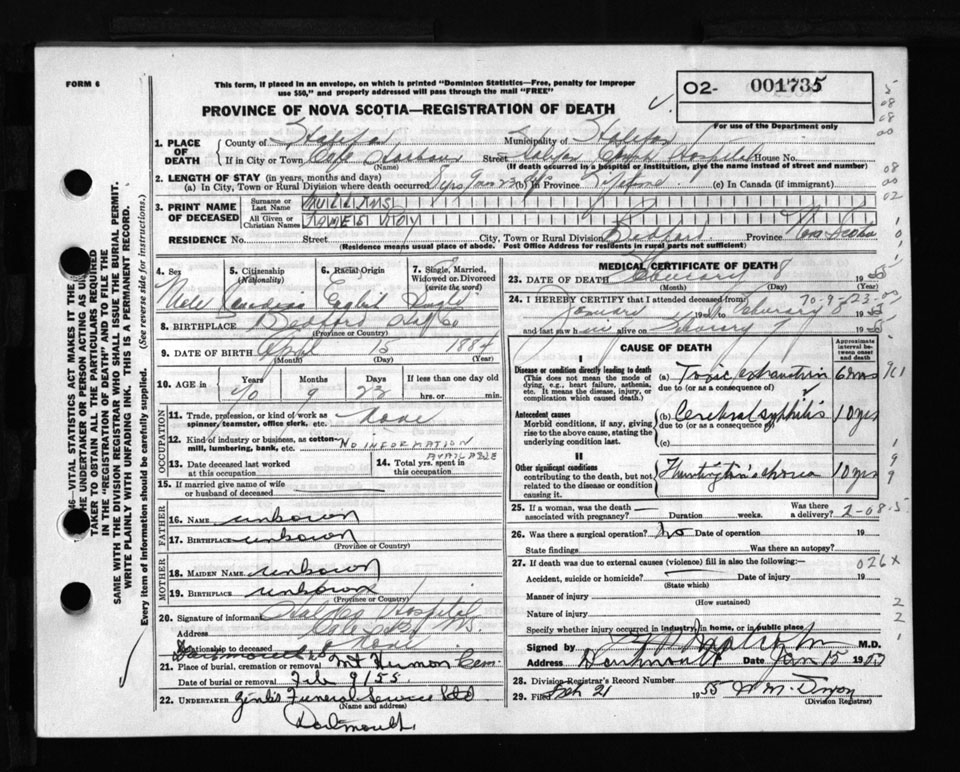 FORM 6
This form, if placed in an envelope, on which is printed "Dominion Statistics—Free, penalty for improper
use $50," and properly addressed will pass through the mail "FREE"
PROVINCE OF NOVA SCOTIA—REGISTRATION OF DEATH
02- 001735
For use of the Department only
1. PLACE OF DEATH County of Halifax Municipality of Halifax
If in City or Town Cole Harbour Street Halifax County Hospital House No.
(Name) (If death occurred in a hospital or institution, give the name instead of street and number)
2. LENGTH OF STAY (in years, months and days)
(a) In City, Town or Rural Division where death occurred (b) In Province Lifetime (c) In Canada (if immigrant)
3. PRINT NAME OF DECEASED
Surname or Last Name
All Given or Christian Names
RESIDENCE No. Street City, Town or Rural Division Bedford Province Nova Scotia
(Residence means usual place of abode. Post Office Address in rural parts not sufficient)
4. Sex 5. Citizenship (Nationality) 6. Racial Origin 7. Single, Married, Widowed or Divorced (write the word)
Male Canadian English Single
8. BIRTHPLACE Bedford Hfx Co
(Province or Country)
9. DATE OF BIRTH April 15 1884
(Month) (Day) (Year)
10. AGE in Years Months Days If less than one day old
70 9 23 hrs. or min.
OCCUPATION
11. Trade, profession, or kind of work as spinner, teamster, office clerk, etc. None
12. Kind of industry or business, as cotton-mill, lumbering, bank, etc. NO INFORMATION AVAILABLE
13. Date deceased last worked at this occupation
14. Total yrs. spent in this occupation
15. If married give name of wife or husband of deceased
FATHER
16. NAME unknown
17. BIRTHPLACE unknown
(Province or Country)
MOTHER
18. MAIDEN NAME unknown
19. BIRTHPLACE unknown
(Province or Country)
20. Signature of informant Halifax Hospital
Address
Relationship to deceased None
21. Place of burial, cremation or removal Mt Hermon Cem.
Date of burial or removal Feb 9/55
22. UNDERTAKER Zink's Funeral Service Ltd
(Name and address)
Dartmouth
MEDICAL CERTIFICATE OF DEATH
23. DATE OF DEATH February 8 1955
(Month) (Day)
24. I HEREBY CERTIFY that I attended deceased from: 70-9-23
January 19 to February 8 1955
and last saw him alive on February 7 1955
CAUSE OF DEATH
Approximate interval between onset and death
I
Disease or condition directly leading to death
(This does not mean the mode of dying, e.g., heart failure, asthenia, etc. It means the disease, injury, or complication which caused death.)
(a) Toxic exhaustion 6 mos
due to (or as a consequence of)
Antecedent causes
Morbid conditions, if any, giving rise to the above cause, stating the underlying condition last.
(b) Cerebral syphilis 10 yrs
due to (or as a consequence of)
(c)
II
Other significant conditions
contributing to the death, but not related to the disease or condition causing it.
Huntington's chorea 10 yrs
25. If a woman, was the death associated with pregnancy? Duration weeks. Was there a delivery?
26. Was there a surgical operation? No Date of operation 19
State findings Was there an autopsy?
27. If death was due to external causes (violence) fill in also the following:—
026X
Accident, suicide or homicide? Date of injury 19
(State which)
Manner of injury
(How sustained)
Nature of injury
Specify whether injury occurred in industry, in home, or in public place
Signed by M.D.
Address Dartmouth Date Jan 15 19
28. Division Registrar's Record Number
29. Filed Feb 21 1955 W. M. Dixon
(Division Registrar)
46—VITAL STATISTICS ACT MAKES IT THE
THE UNDERTAKER OR PERSON ACTING AS UNDER
TAKER TO OBTAIN ALL THE PARTICULARS REQUIRED
IN THE "REGISTRATION OF DEATH" AND TO FILE THE
SAME WITH THE DIVISION REGISTRAR WHO SHALL ISSUE THE BURIAL PERMIT.
WRITE PLAINLY WITH UNFADING INK. THIS IS A PERMANENT RECORD.
Every item of information should be carefully supplied. (See reverse side for instructions.)